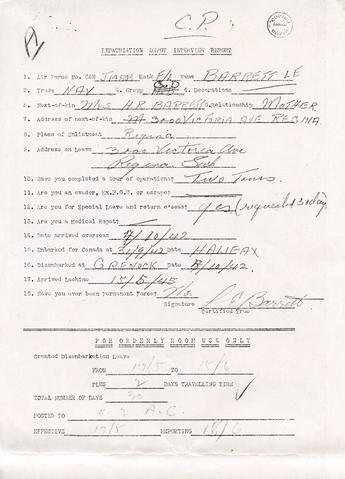 C.P.
REPATRIATION DEPOT INTERVIEW REPORT
1. Air Force No. CAN Rank F/L Name BARRETT LE
2. Trade NAV 3. Group 4. Decorations
5. Next-of-kin Mrs H.R BARRETT 6. Relationship MOTHER
7. Address of next-of-kin 3000 VICTORIA AVE REGINA
8. Place of Enlistment Regina
9. Address on Leave 3000 Victoria Ave
Regina Sask
10. Have you completed a tour of operations: Two Tours.
11. Are you an evader, Ex.P.O.W. or escapee:
12. Are you for Special Leave and return o'seas: yes (request 30 days
13. Are you a Medical Repat:
14. Date arrived overseas 7/10/42
15. Embarked for Canada at 30/9/42 Date HALIFAX
16. Disembarked at GRENOCK Date 7/10/42.
17. Arrived Lachine 15/5/45
18. Have you ever been Permanent Force: No.
Signature L E Barrett
Certified True
FOR ORDERLY ROOM USE ONLY
Granted Disembarkation Leave
FROM 17/5 TO 15/6
PLUS 2 DAYS TRAVELLING TIME
TOTAL NUMBER OF DAYS 30
POSTED TO A.C.
EFFECTIVE 17/5 REPORTING 18/6